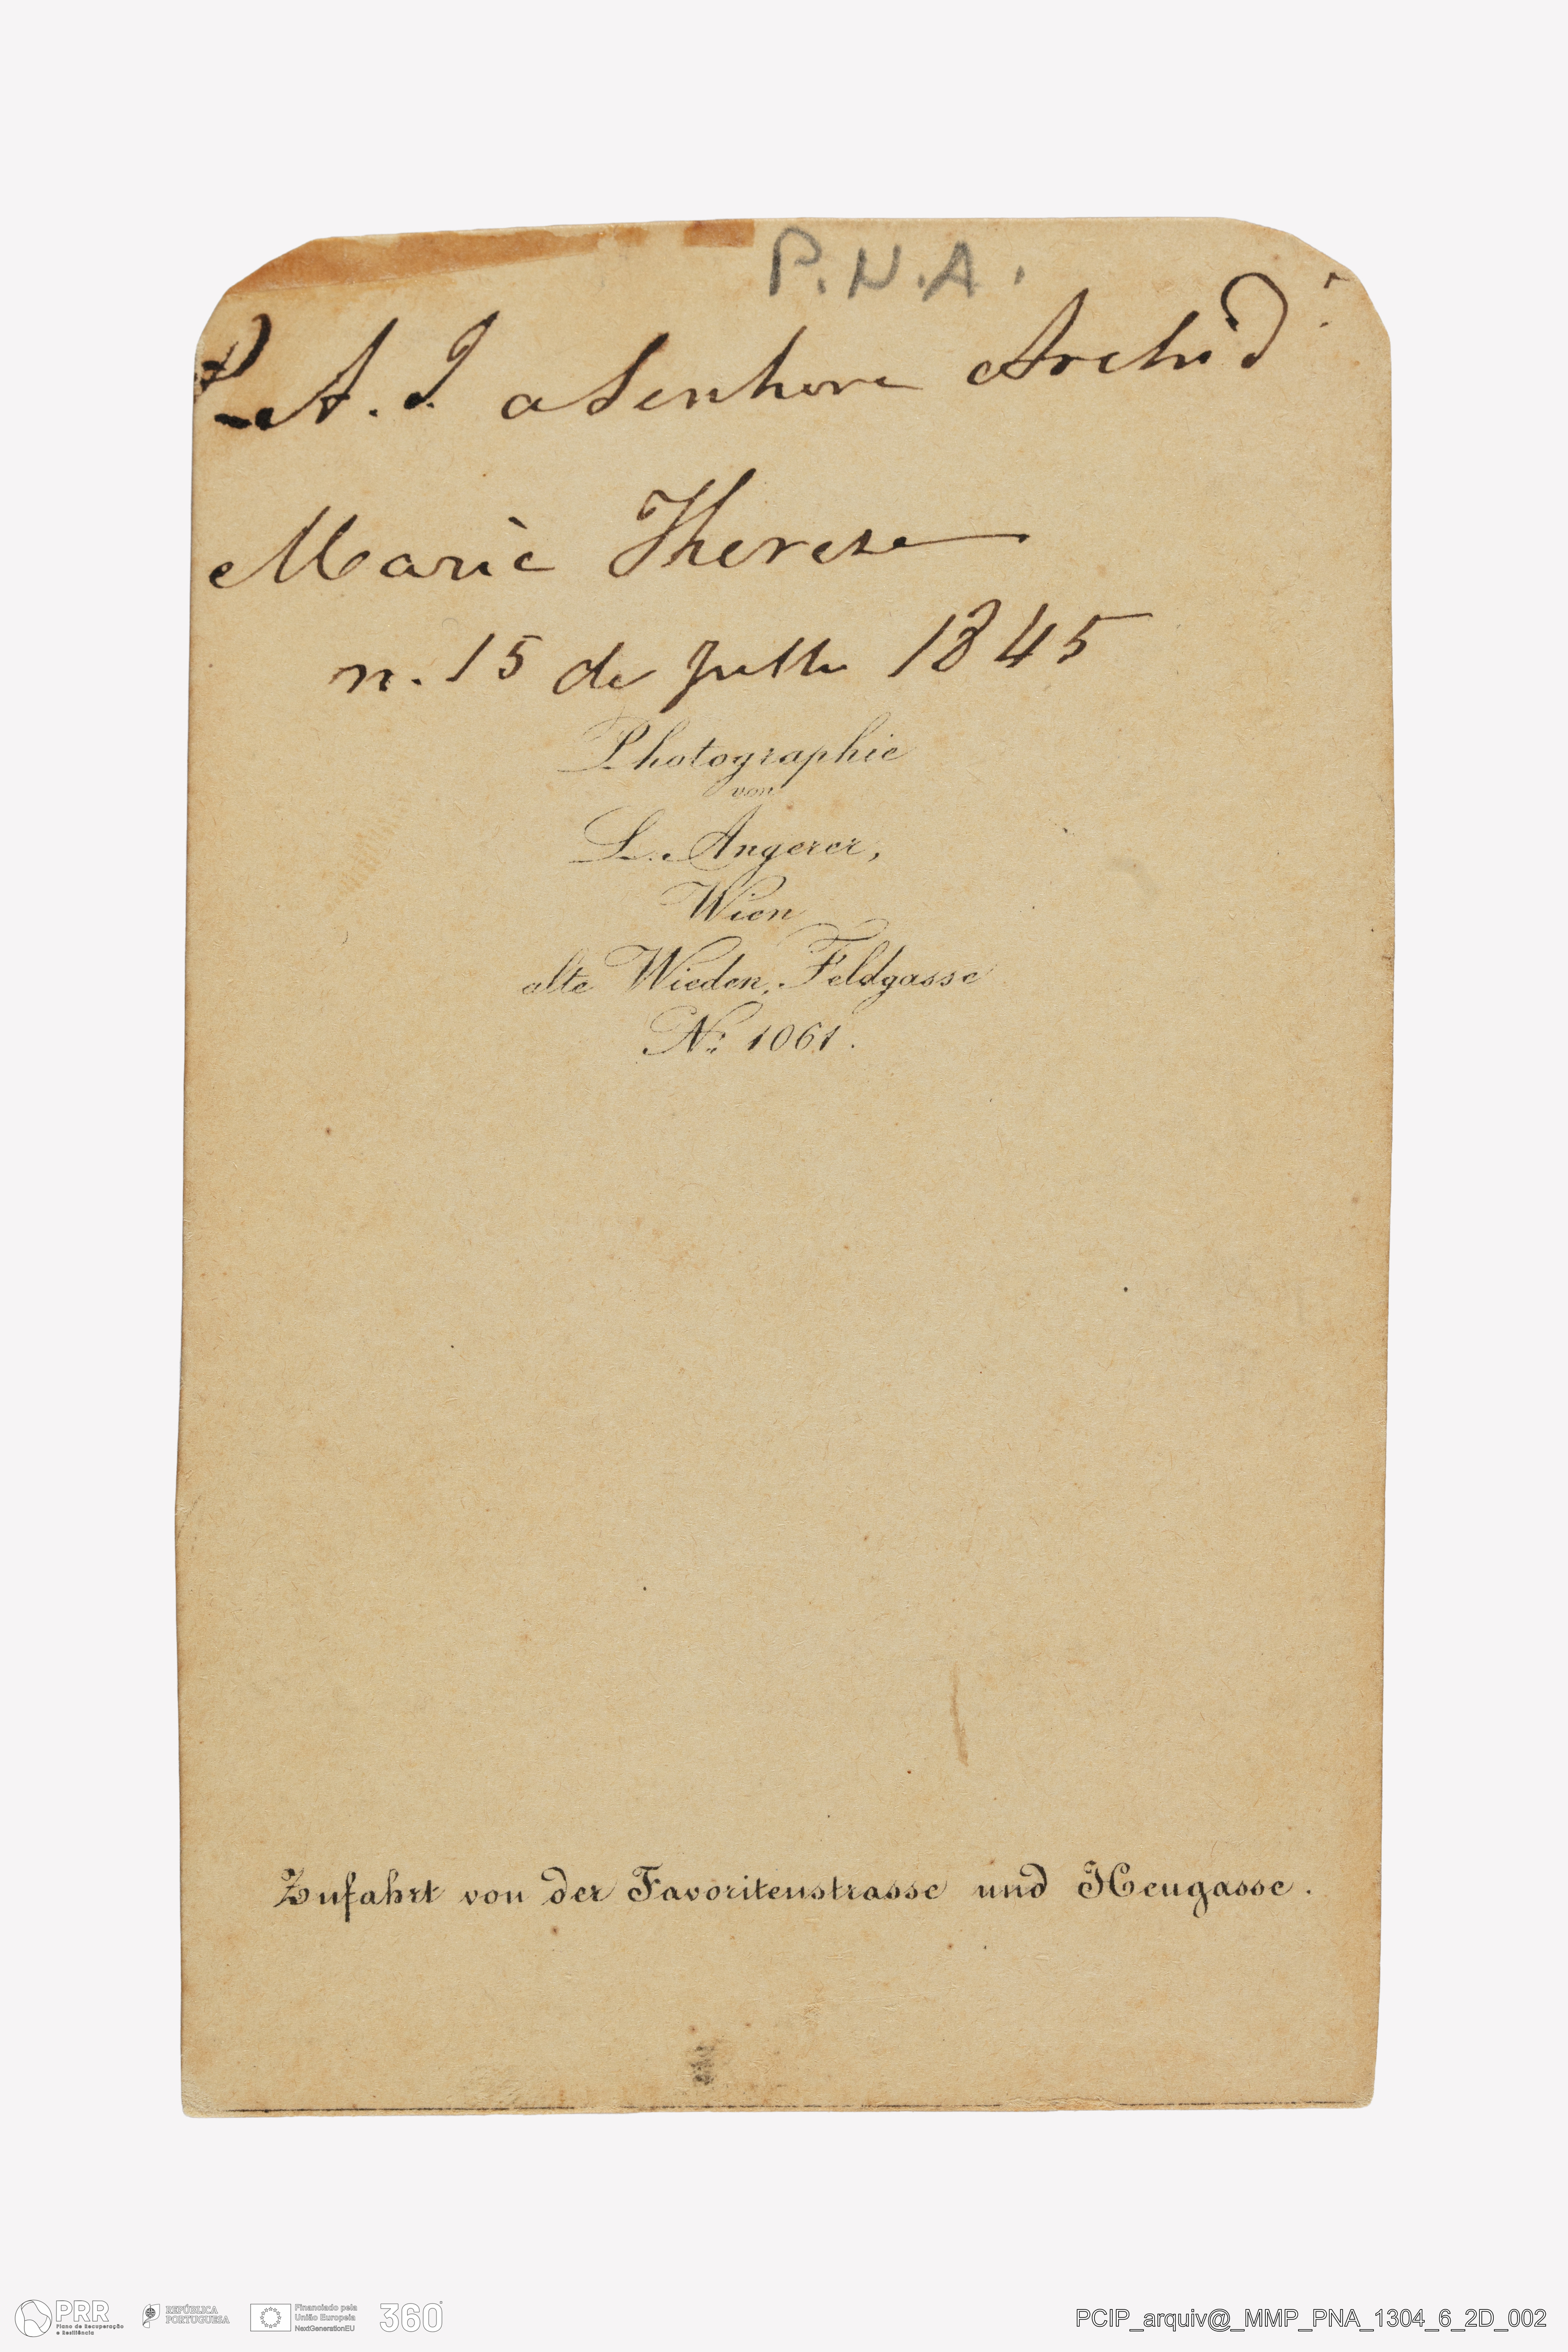 P.N.A.
A. I. a Senhora Archid
Marie Therese
n. 15 de Julho 1845
Photographie
von
L. Angerer,
Wien
alte Wieden, Feldgasse
No. 1061.
Zufahrt von der Favoritenstrasse und Heugasse.
PRR
Plano de Recuperação
e Resiliência
REPÚBLICA
PORTUGUESA
Financiado pela
União Europeia
NextGenerationEU
360°
PCIP_arquiv@_MMP_PNA_1304_6_2D_002